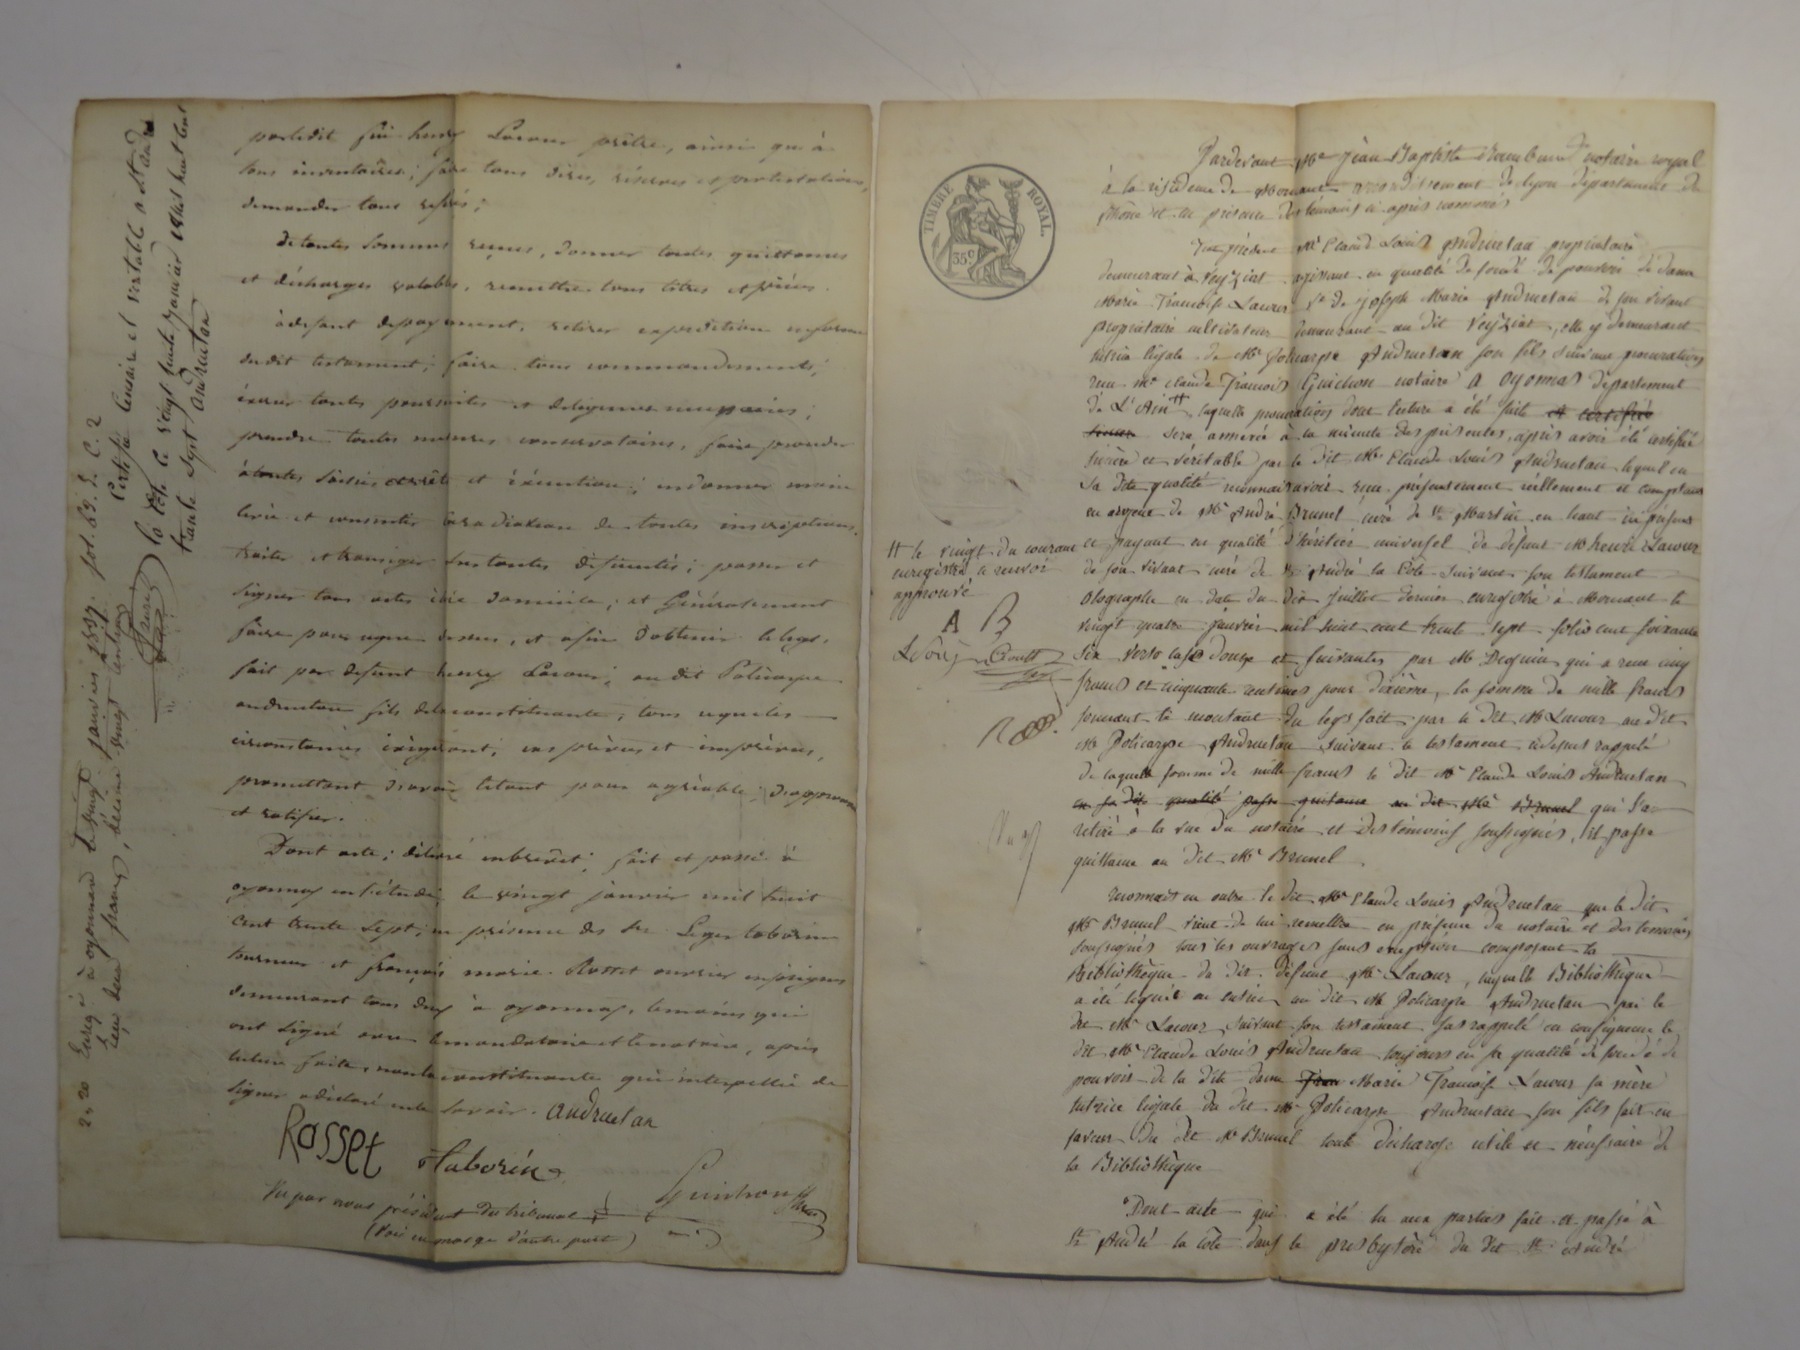 par ledit feu henry Lacour prêtre, ainsi qu'à
tous inventaires; faire tous dires, réserves et protestations,
demander tous
de toutes sommes reçues, donner toutes quittances
et décharges valables, remettre tous titres et pièces.
à défaut de payement, retirer expédition en forme
dudit testament; faire tous commandements,
exercer toutes poursuites et diligences nécessaires;
prendre toutes mesures conservatoires, faire procéder
à toutes saisies arrêts et exécution; en donner main
levée et consentir la radiation de toutes inscriptions,
traiter et transiger sur toutes difficultés; passer et
signer tous actes élire domicile; et Généralement
faire pour ce que dessus, et afin d'obtenir le legs
fait par defunt henry Lacour, au dit Policarpe
andruetan fils de la constituante, tout ce que les
circonstances exigeront; cas prévus et imprévus,
promettant d'avoir le tout pour agréable; d'approuver
et ratifier.
Dont acte; délivré en brevet; fait et passé à
oyonnax en l'étude, le vingt janvier mil huit
cent trente sept, en présence des Srs Leger taborin
tourneur et françois marie Rosset ouvrier en peignes
demeurant tous deux à oyonnax, témoins qui
ont signé avec le mandataire et le notaire, après
lecture faite, non la constituante qui interpellée de
signer a déclaré ne le savoir. andruetan
Rosset
Taborin
Guichon
Vu par nous président du tribunal
(Voir en marge d'autre part)
2. 20 Enreg. à oyonnax le vingt janvier 1837. fol. 69. R. C. 2
reçu deux francs, décime vingt centimes
Certifié sincère et véritable a St andré
la Côte le vingt trente janvier mil huit cent
trante sept andruetan
TIMBRE ROYAL.
35 c
Pardevant Me Jean Baptiste notaire royal
à la résidence de Mornant arrondissement de lyon département du
Rhône et en présence des témoins ci après nommés
Fut présent Mr Claude Louis Andruetan propriétaire
demeurant à Veyziat agissant en qualité de fondé de pouvoir de dame
Marie Françoise Lacour Ve de Joseph Marie Andruetan de son vivant
propriétaire cultivateur demeurant au dit Veyziat, elle y demeurant
tutrice légale de Mr Policarpe Andruetan son fils suivant procuration
reçu Me claude François Guichon notaire A oyonnax département
de L'Ain # laquelle procuration dont lecture a été faite et certifiée
sincère sera annexée à la minute des présentes, après avoir été certifié
sincère et véritable par le dit Mr Claude Louis Andruetan lequel en
sa dite qualité reconnait avoir reçu présentement réellement et comptant
en argent de Mr André Brunel curé de St Martin en haut ici présent
et payant en qualité d'héritier universel de défunt M henri Lacour
de son vivant curé de St André la Côte suivant son testament
olographe en date du dix juillet dernier enregistré à Mornant le
vingt quatre janvier mil huit cent trente sept folio cent soixante
six verso case douze et suivantes par M Dequin qui a reçu cinq
francs et cinquante centimes pour dixième, la somme de mille francs
formant le montant du legs fait par le dit M Lacour au dit
M Policarpe Andruetan suivant le testament ci dessus rappelé
de laquelle somme de mille francs le dit Mr Claude Louis Andruetan
en sa dite qualité passe quitance au dit Mr Brunel qui l'a
retiré à la vue du notaire et des témoins soussignés, il passe
quittance au dit Mr Brunel
# le vingt du courant
enregistré ce renvoi
approuvé
A B
reconnait en outre le dit Mr Claude Louis Andruetan que le dit
Mr Brunel vient de lui remettre en présence du notaire et des temoins
soussignés tous les ouvrages sans exception composant la
Bibliothèque du dit défunt Mr Lacour, laquelle Bibliothèque
a été léguée en entier au dit M Policarpe Andruetan par le
dit Mr Lacour suivant son testament sus rappelé en conséquence le
dit Mr Claude Louis Andruetan toujours en sa qualité de fondé de
pouvoir de la dite dame Fran Marie Françoise Lacour sa mère
tutrice légale du dit M Policarpe Andruetan son fils fait en
faveur du dit Mr Brunel toute décharge utile et nécessaire de
la Bibliothèque
Dont acte qui a été lu aux parties fait et passé à
St André la Côte dans le presbytère du dit St André